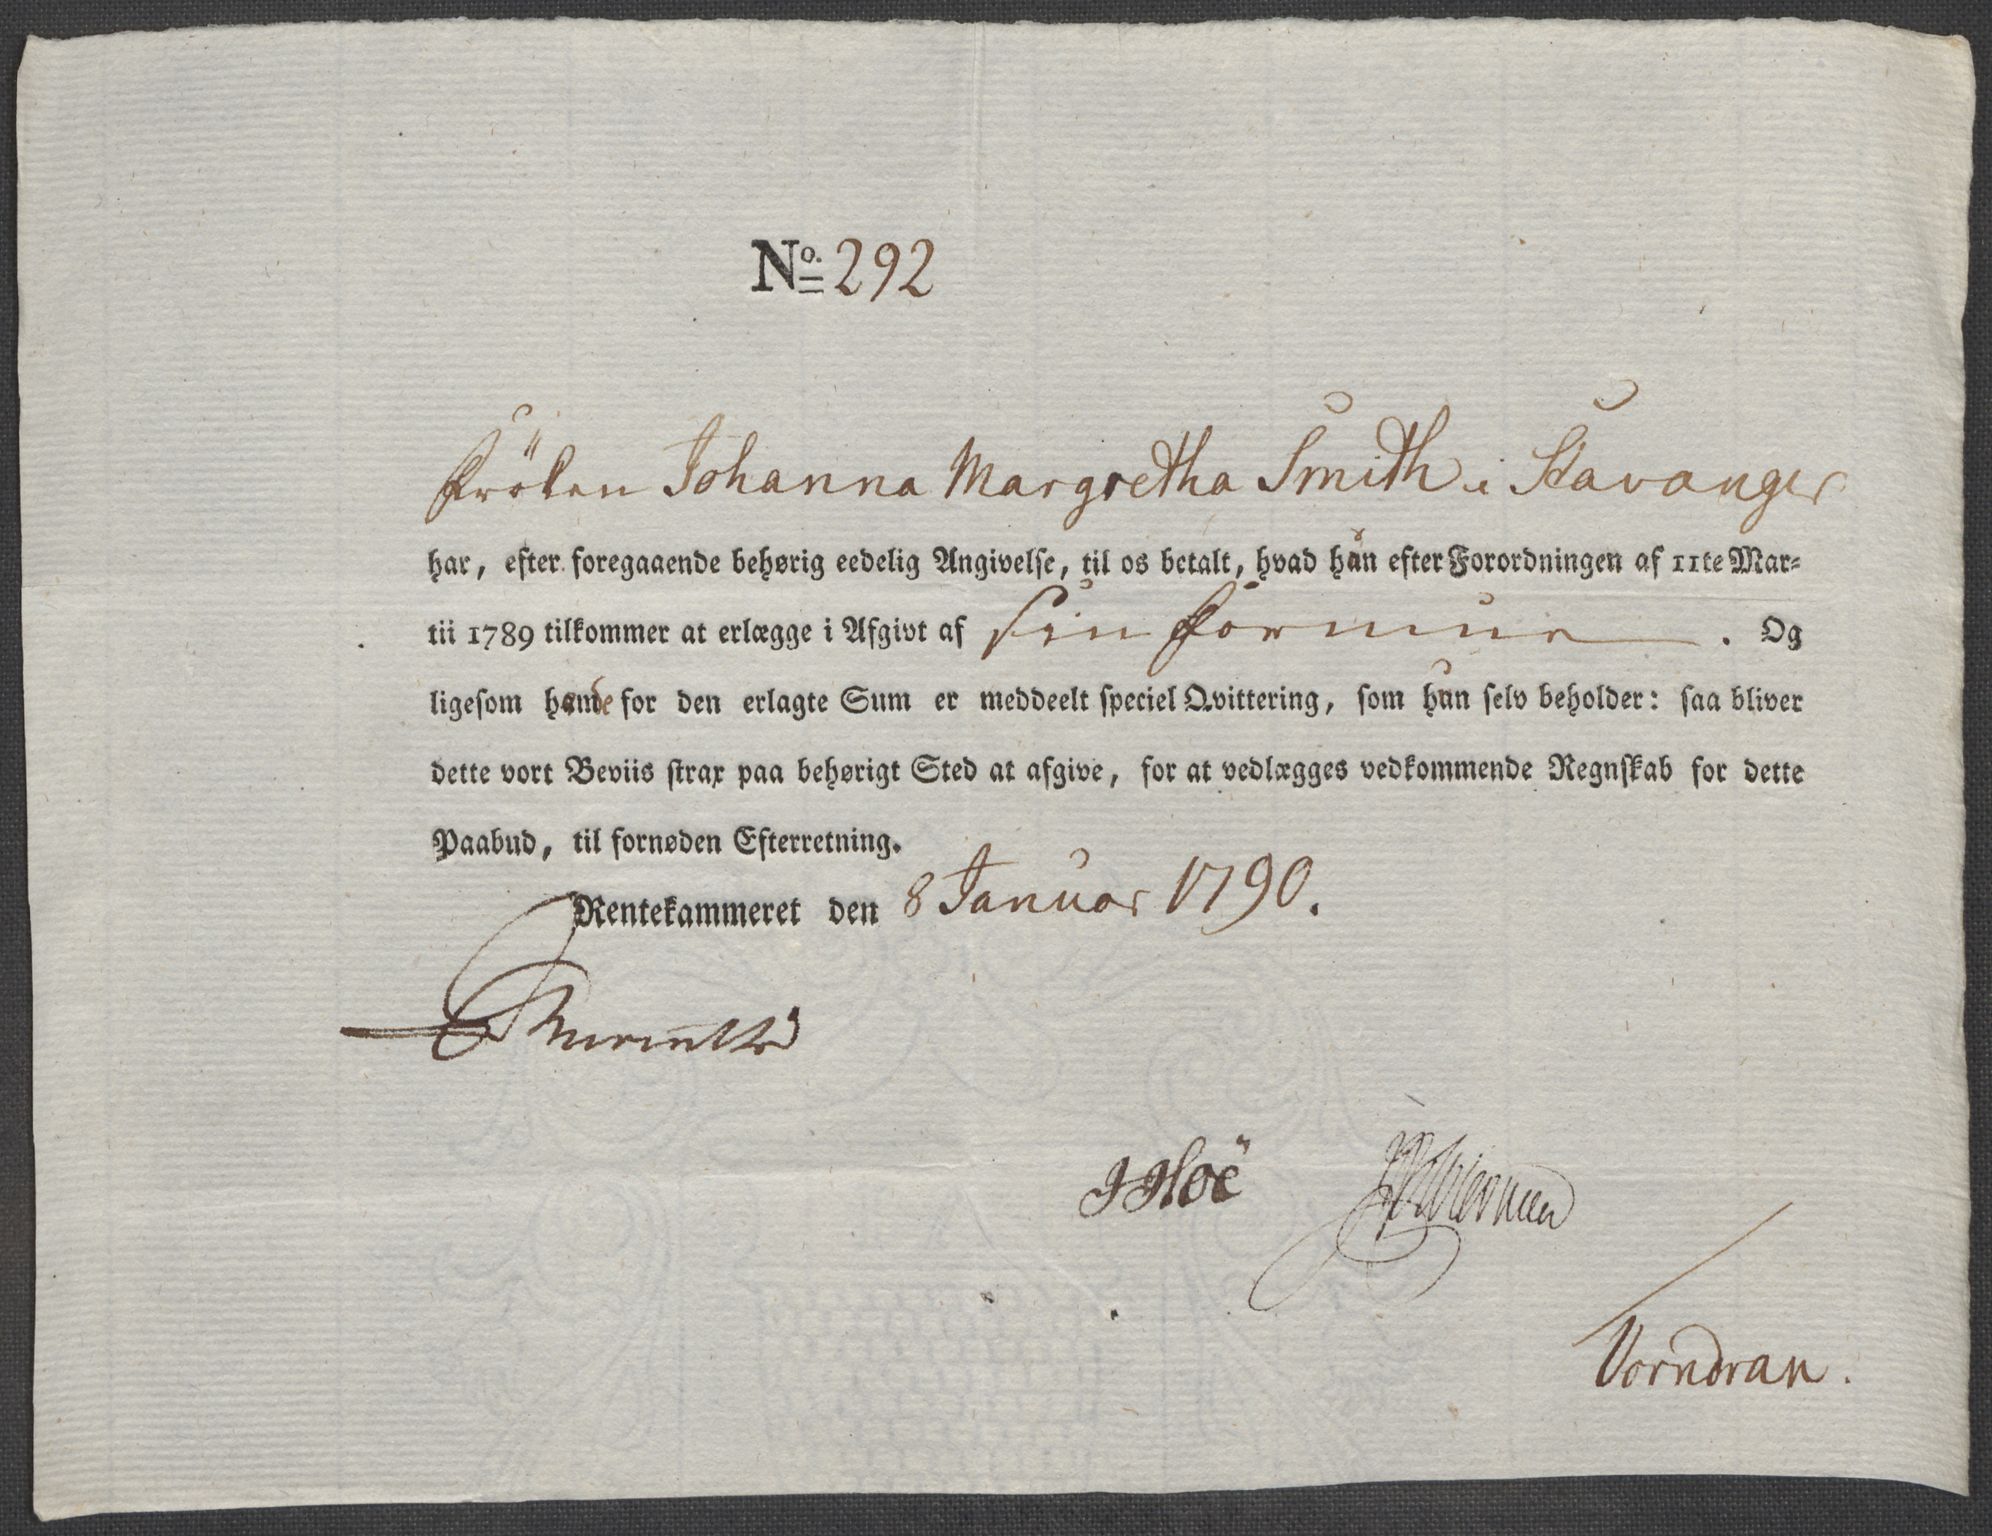 No. 292
Fröken Johanna Margretha Smith i Stavanger
har, efter foregaaende behørig eedelig Angivelse, til os betalt, hvad hun efter Forordningen af 11te Mar-
tii 1789 tilkommer at erlægge i Afgivt af sin Formue. Og
ligesom hende for den erlagte Sum er meddeelt speciel Qvittering, som hun selv beholder: saa bliver
dette vort Beviis strax paa behørigt Sted at afgive, for at vedlægges vedkommende Regnskab for dette
Paabud, til fornøden Efterretning.
Rentekammeret den 8 Januar 1790.
J Hoë
Vorndran.